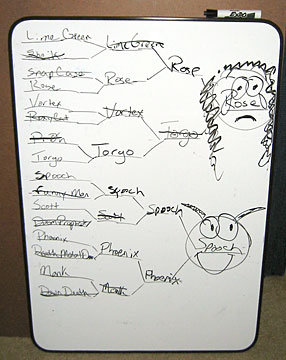 EXPO
Lime Green
Snap Case
Rose
Vortex
Torgo
Spooch
Funny Man
Scott
Phoenix
Death Metal Dan
Monk
Down Death
Lime Green
Rose
Vortex
Torgo
Spooch
Scott
Phoenix
Monk
Rose
Torgo
Spooch
Phoenix
Rose
Spooch